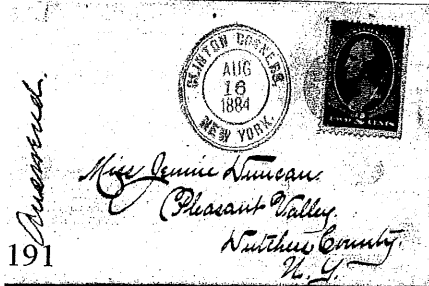 CLINTON CORNERS
AUG
16
1884
NEW YORK.
TWO 2 CENTS
Answered.
Miss Jennie Duncan.
Pleasant Valley.
Dutchess County.
N. Y.
191